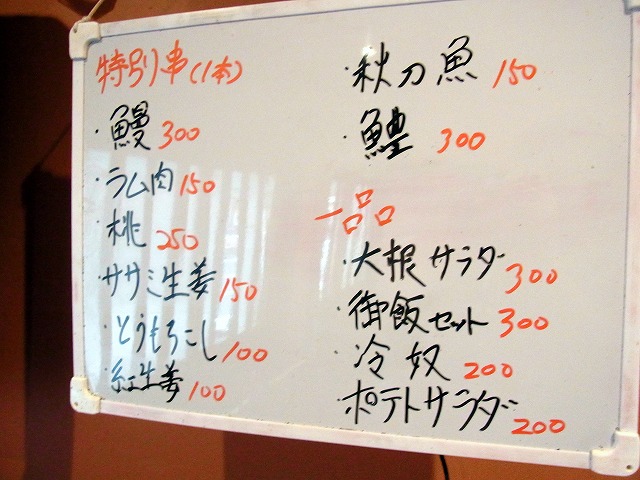 特別串(1本)
・鰻 300
・ラム肉 150
・桃 250
・ササミ生姜 150
・とうもろこし 100
・紅生姜 100
・秋刀魚 150
・鱧 300
一品
・大根サラダ 300
・御飯セット 300
・冷奴 200
・ポテトサラダ 200